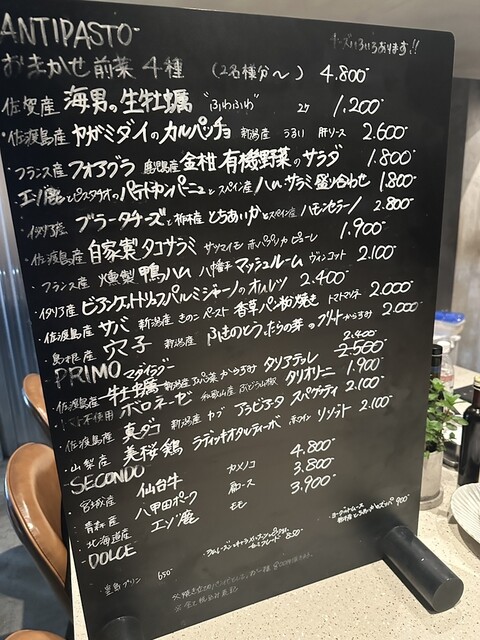 ANTIPASTO
チーズいろいろあります!!
おまかせ前菜4種 (2名様分〜) 4.800-
佐賀産 海男の生牡蠣 "ふわふわ" 2ケ 1.200-
佐渡島産 ヤガミダイのカルパッチョ 新潟産 うまい 肝ソース 2.600-
フランス産 フォアグラ 鹿児島産 金柑 有機野菜のサラダ 1.800-
エゾ鹿とピスタチオのパテドカンパーニュとスペイン産 ハム・サラミ盛り合わせ 1.800-
イタリア産 ブラータチーズと栃木産とちあいかとスペイン産 ハモンセラーノ 2.800-
佐渡島産 自家製タコサラミ サツマイモ 赤パプリカピューレ 1.900-
フランス産 燻製 鴨ハム 八幡平マッシュルーム ヴィンコット 2.100-
イタリア産 ビアンケットトリュフパルミジャーノのオムレツ 2.400-
佐渡島産 サバ 新潟産 きのこペースト 香草パン粉焼き トマトマンネ 2.000-
島根産 穴子 新潟産 ふきのとう、たらの芽のフリット からすみ 2.000-
PRIMO
佐渡島産 牡蠣 新潟産 からすみ タリアテッレ 2.400- 2.500-
トマト不使用 ボロネーゼ 和歌山産 ぶどう山椒 タリオリーニ 1.900-
佐渡島産 真ダコ 新潟産 アラビアータ スパゲッティ 2.100-
山梨産 美桜鶏 ラディッキオタルティーボ 赤ワイン リゾット 2.100-
SECONDO
宮城産 仙台牛 カメノコ 4.800-
青森産 八甲田ポーク 肩ロース 3.800-
北海道産 エゾ鹿 モモ 3.900-
DOLCE
プリン 650-
850-
ヨーグルトムース
900-